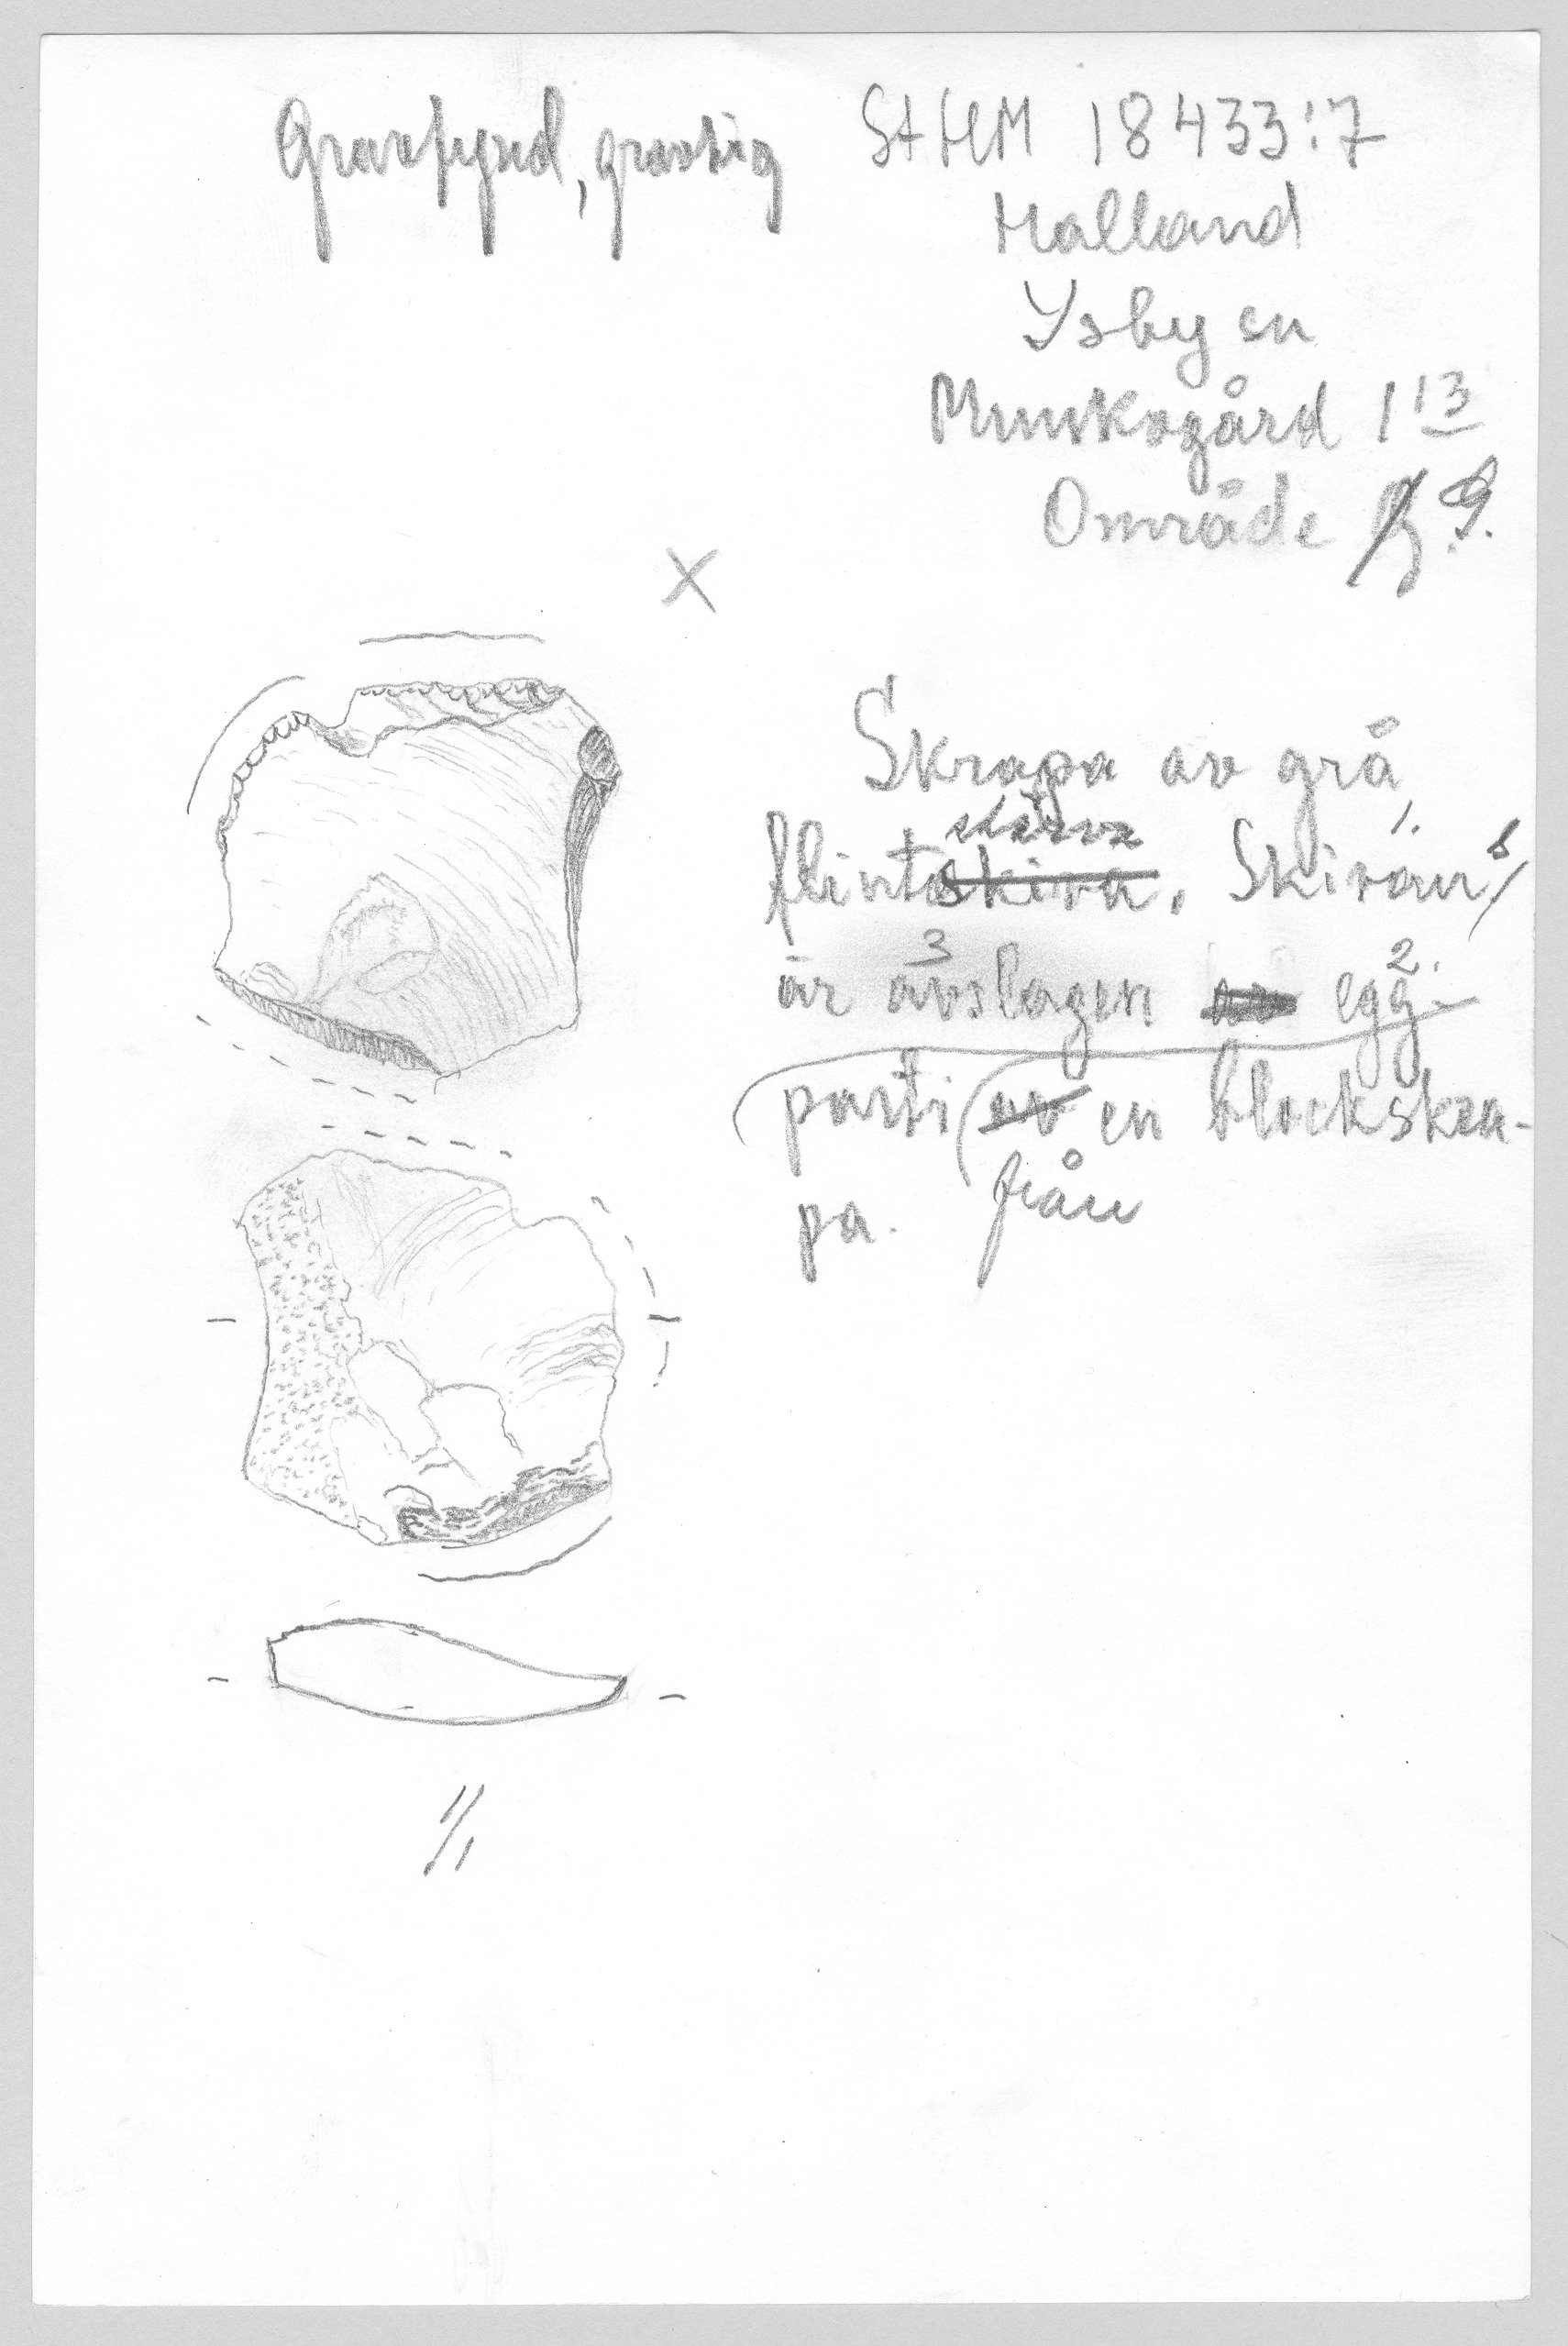 Gravfynd, grustäg
StHM 18433:7
Halland
Ysby sn
Munkagård 1 13
Område
X
Skrapa av grå
skärva 1.
flintaskiva. Skivans
3 2.
är avslagen av egg-
parti av en blockskra-
pa. från
1/1